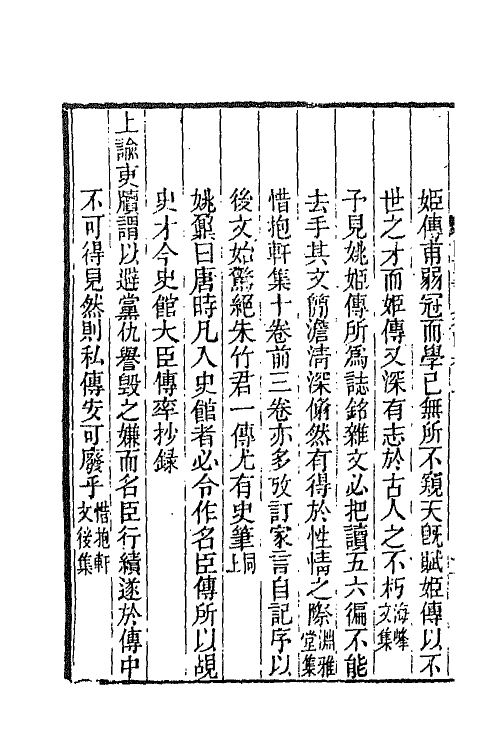 姬傳甫弱冠而學已無所不窺天旣賦姬傳以不
世之才而姬傳又深有志於古人之不朽海峰文集
予見姚姬傳所爲誌銘雜文必把讀五六徧不能
去手其文簡澹清深翛然有得於性情之際淵雅堂集
惜抱軒集十卷前三卷亦多攷訂家言自記序以
後文始驚絕朱竹君一傳尤有史筆同上
姚鼐曰唐時凡入史館者必令作名臣傳所以覘
史才今史館大臣傳率抄録
上諭吏牘謂以避黨仇譽毀之嫌而名臣行績遂於傳中
不可得見然則私傳安可廢乎惜抱軒文後集